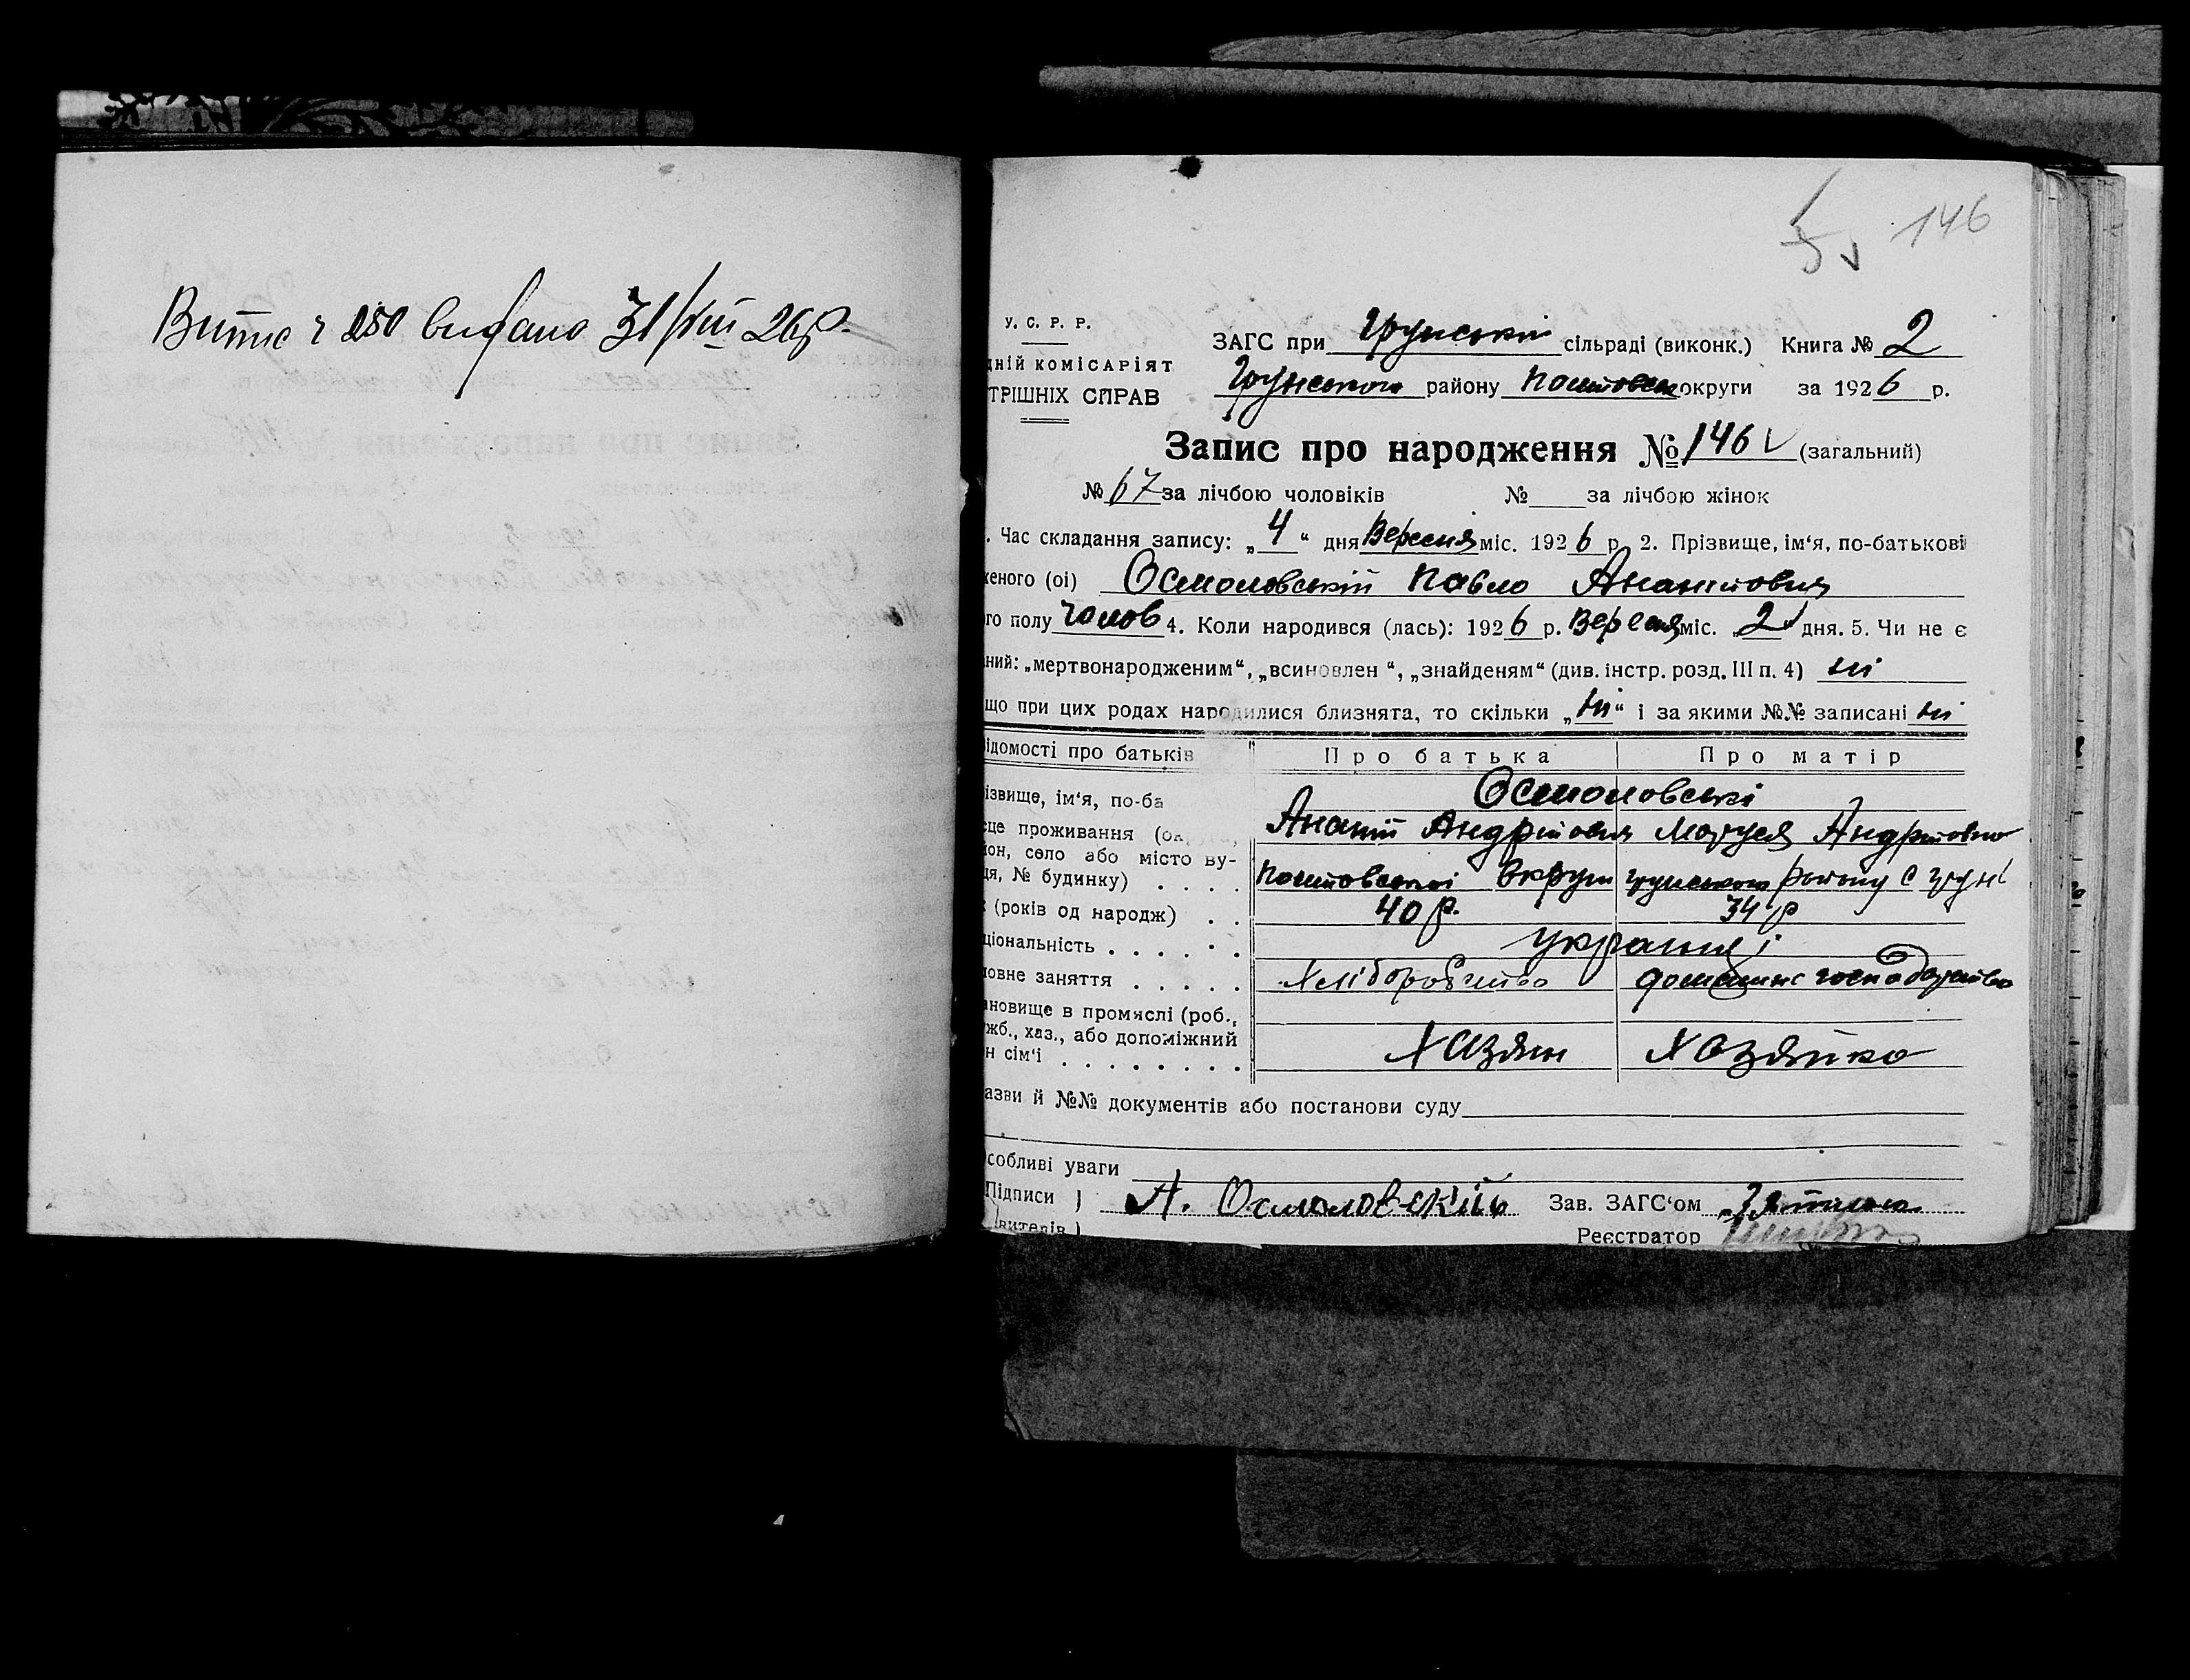 Витис ч 250 видано 31/VIII 26р.
146
У. С. Р. Р.
ДНІЙ КОМІСАРІЯТ
ТРІШНІХ СПРАВ
ЗАГС при Грунській сільраді (виконк.) Книга № 2
Грунського району Полтовськ округи за 1926 р.
Запис про народження № 146 (загальний)
№ 67 за лічбою чоловіків № за лічбою жінок
. Час складання запису: „4“ дня Вересня міс. 1926 р. 2. Прізвище, ім‘я, по-батькові
женого (ої) Осмоловський Павло Ананійович
го полу Чолов 4. Коли народився (лась): 1926 р. Вересня міс. „2“ дня. 5. Чи не є
ний: „мертвонародженим“, „всиновлен “, „знайденям“ (див. інстр. розд. III п. 4) ні
що при цих родах народилися близнята, то скільки „ні“ і за якими №№ записані ні
ідомості про батьків Про батька Про матір
ізвище, ім‘я, по-ба Осмоловські
Ананій Андрійович Маруся Андрійовна
це проживання (округа,
йон, село або місто ву-
ця, № будинку) . . . . Полтовської Округи Грунського району с Груні
(років од народж) . . 40 р. 34 р
ціональність . . . . . . українці
ловне заняття . . . . . Хліборобство домашнє господарство
ановище в промислі (роб.,
жб., хаз., або допоміжний
н сім‘ї . . . . . . . . . Хазяїн Хазяйка
азви й №№ документів або постанови суду
собливі уваги
Підписи } А. Осмоловський Зав. ЗАГС‘ом
вителів } Реєстратор